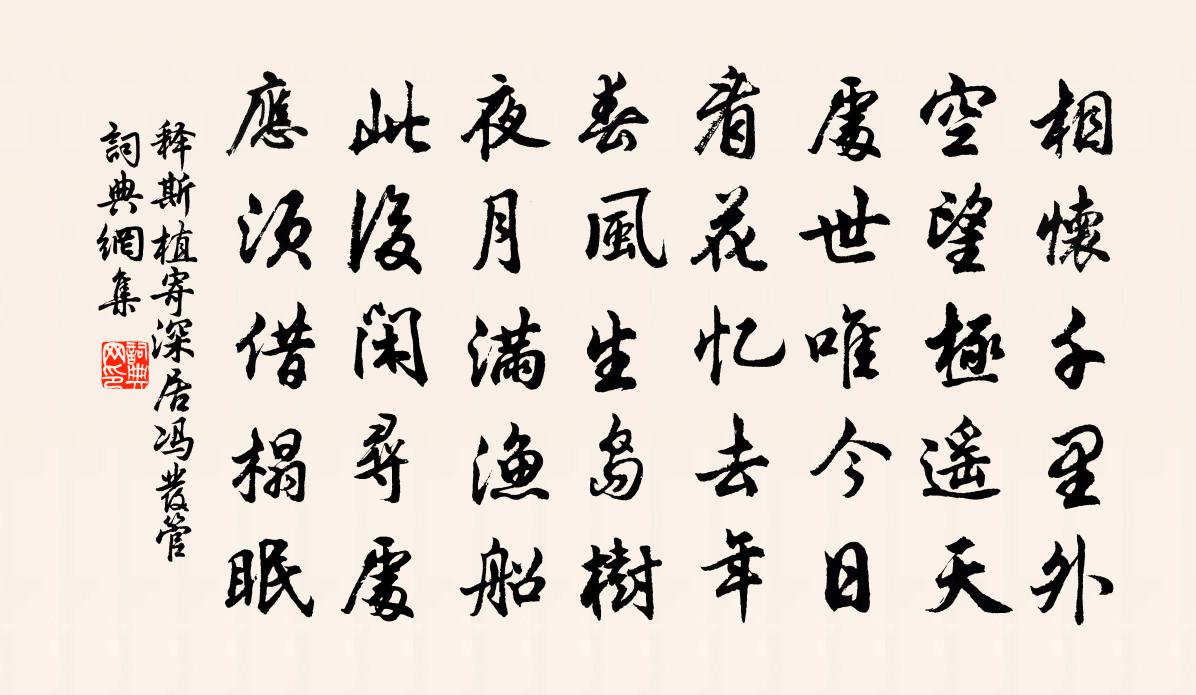 相懷千里外
空望極遥天
處世唯今日
看花忆去年
春風生島樹
夜月滿漁船
此後閑尋處
應須借榻眠
释斯植寄深居冯發管
詞典網集
詞典网印